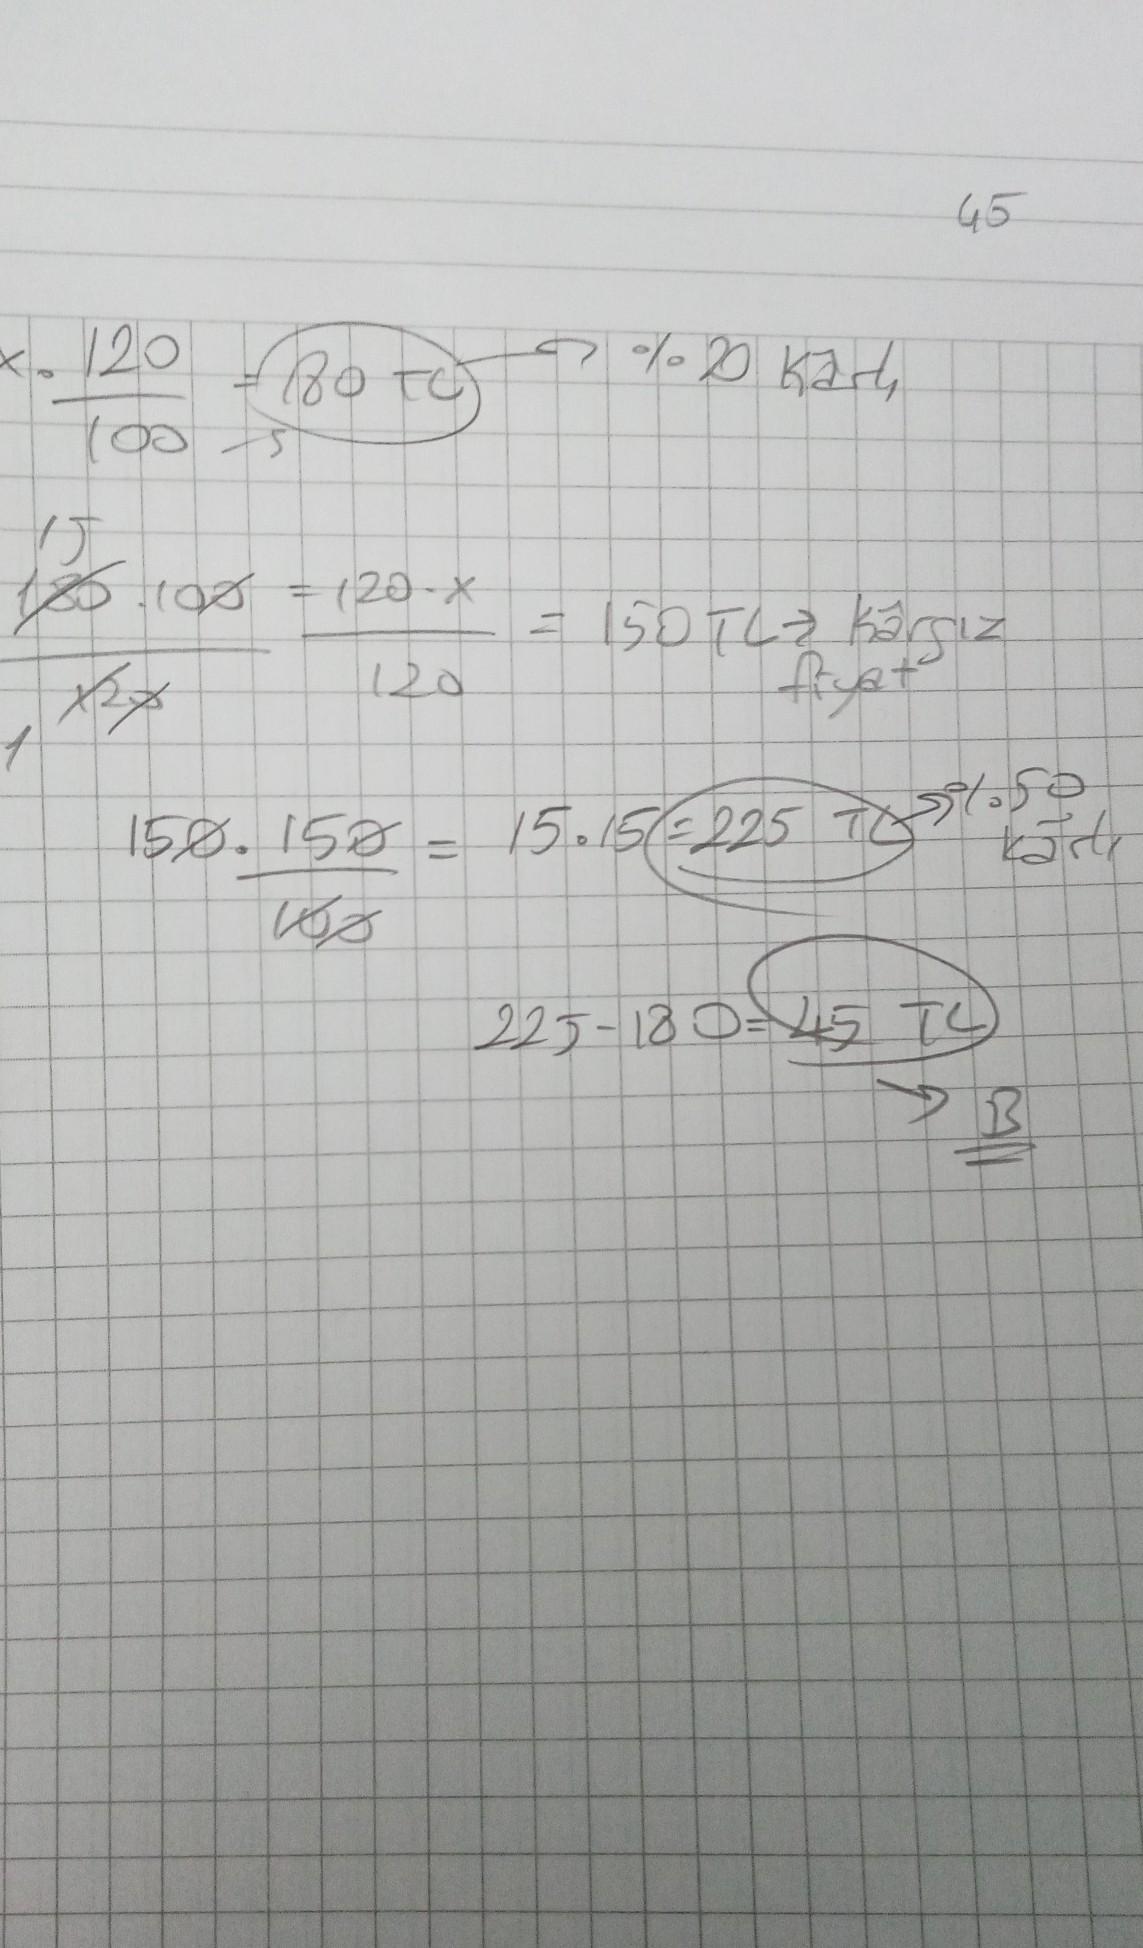 45
x . 120/100 = 180 TL → %20 Kârlı
15
180 . 100 / 120 = 120 . x / 120 = 150 TL → Kârsız fiyat
1
150 . 150/100 = 15.15 = 225 TL → %50 kârlı
225 - 180 = 45 TL
→ B